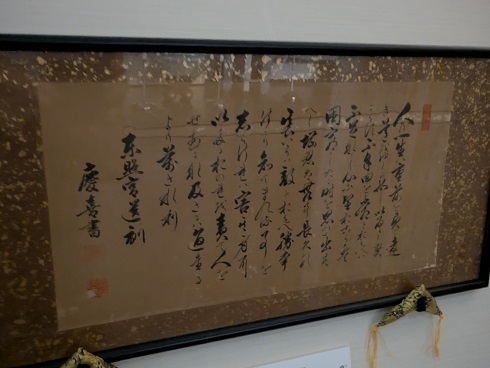 人の一生は重荷を負て遠
き道をゆくか如しいそくへ
からす不自由を常とおもへは
不足なし心に望おこらは
困窮したる時を思ひ出す
へし堪忍は無事長久の
基いかりは敵とおもへ勝事
はかり知りてまくる事を
しらされは害其身に
いたるおのれを責て人を
せむるな及はさるは過たる
より
東照宮遺訓
慶喜書